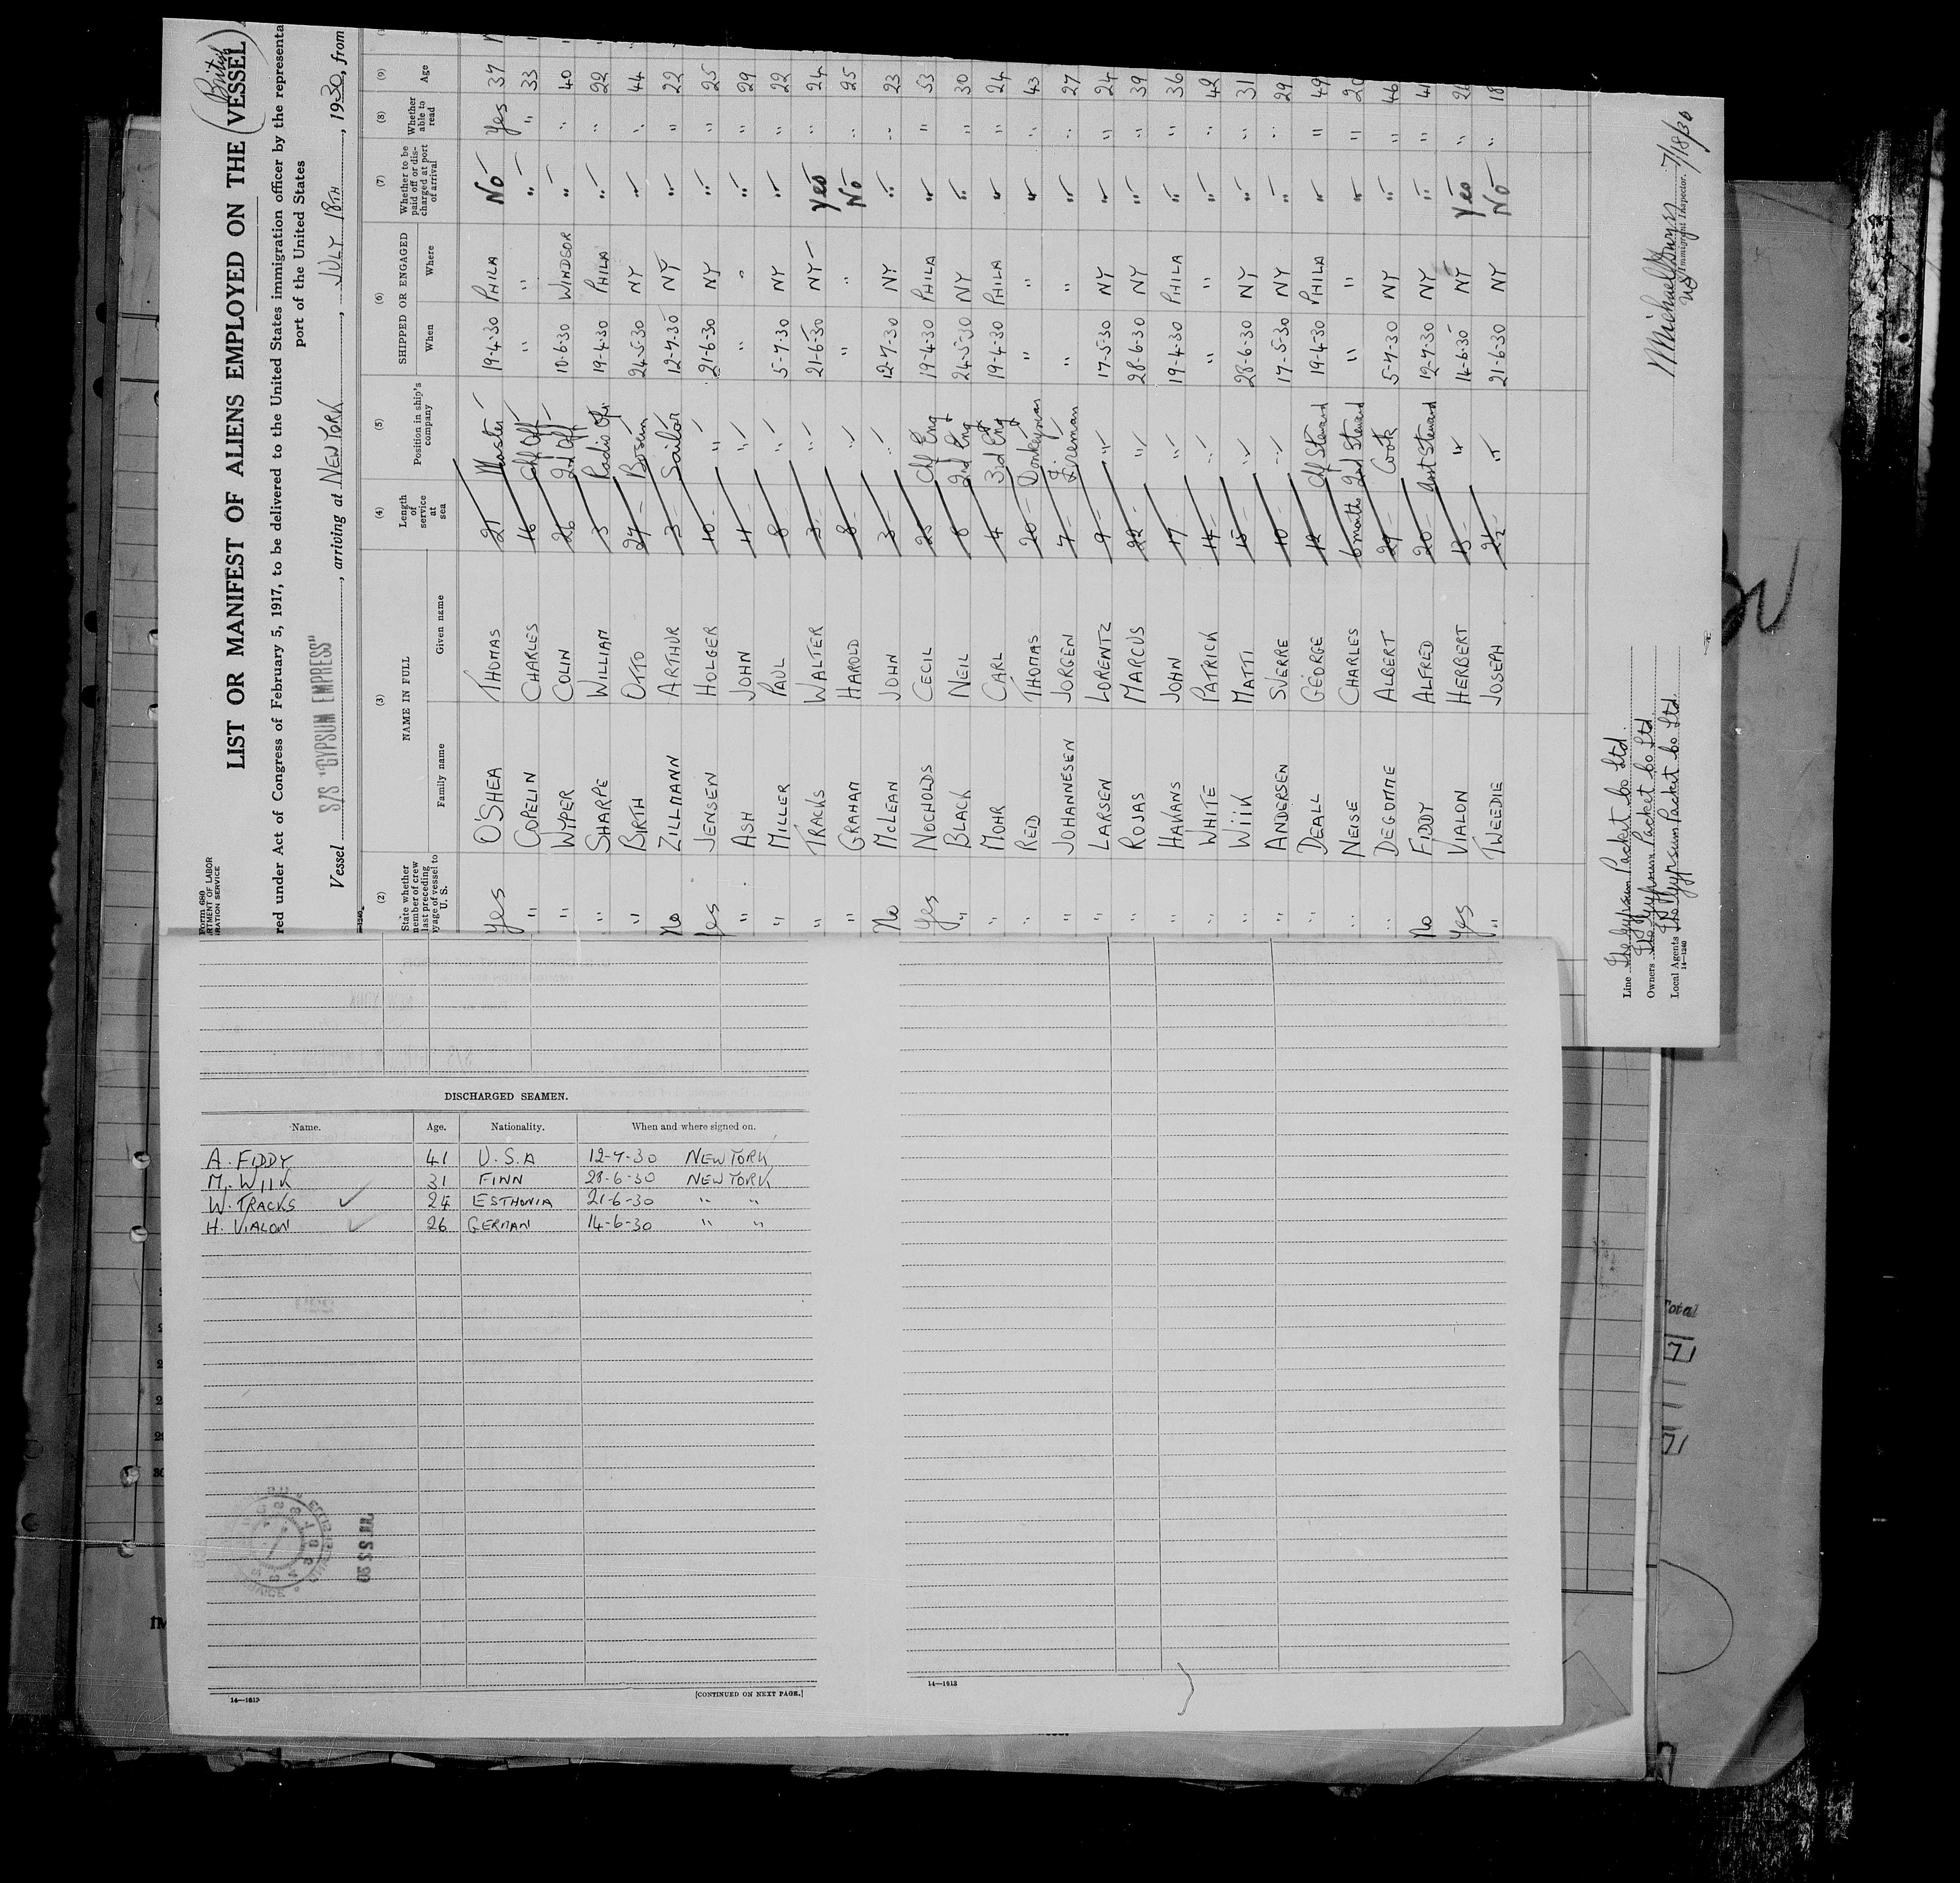 Form 680
LIST OR MANIFEST OF ALIENS EMPLOYED ON THE VESSEL
red under Act of Congress of February 5, 1917, to be delivered to the United States immigration officer by the representa
port of the United States
Vessel S/S "GYPSUM EMPRESS", arriving at NEW YORK, JULY 18TH, 1930, from
(2) (3) (4) (5) (6) (7) (8) (9)
State whether member of crew last preceding voyage of vessel to U. S. | NAME IN FULL | Family name | Given name | Length of service at sea | Position in ship's company | SHIPPED OR ENGAGED | When | Where | Whether to be paid off or discharged at port of arrival | Whether able to read | Age
Yes O'SHEA THOMAS 21 Master 19-4-30 PHILA No Yes 37
" COPELIN CHARLES 16 Chf Off " " " " 33
" WYPER COLIN 26 2nd Off 10-6-30 WINDSOR " " 40
" SHARPE WILLIAM 3 Radio Opr 19-4-30 PHILA " " 22
" BIRTH OTTO 27 Bosun 24-5-30 NY " " 44
No ZILLMANN ARTHUR 3 Sailor 12-7-30 NY " " 22
Yes JENSEN HOLGER 10 " 21-6-30 NY " " 25
" ASH JOHN 4 " " " " " 29
" MILLER PAUL 8 " 5-7-30 NY " " 22
" TRACKS WALTER 3 " 21-6-30 NY Yes " 24
" GRAHAM HAROLD 8 " " " No " 25
No McLEAN JOHN 3 " 12-7-30 NY " " 23
Yes NOCHOLDS CECIL 25 Chf Eng 19-4-30 PHILA " " 53
" BLACK NEIL 8 2nd Eng 24-5-30 NY " " 30
" MOHR CARL 4 3rd Eng 19-4-30 PHILA " " 24
" REID THOMAS 20 Donkeyman " " " " 43
" JOHANNESEN JORGEN 7 Fireman " " " " 27
" LARSEN LORENTZ 9 " 17-5-30 NY " " 24
" ROJAS MARCUS 22 " 28-6-30 NY " " 39
" HAVANS JOHN 17 " 19-4-30 PHILA " " 36
" WHITE PATRICK 14 " " " " " 42
" WIIK MATTI 15 " 28-6-30 NY " " 31
" ANDERSEN SVERRE 10 " 17-5-30 NY " " 29
" DEALL GEORGE 12 Chf Steward 19-4-30 PHILA " " 49
" NEISE CHARLES 6 months 2nd Steward " " " " 20
" DEGOMME ALBERT 29 Cook 5-7-30 NY " " 46
No FIDDY ALFRED 20 Asst Steward 12-7-30 NY " " 41
Yes VIALON HERBERT 13 " 14-6-30 NY Yes " 26
" TWEEDIE JOSEPH " 21-6-30 NY No " 18
Line The Gypsum Packet Co Ltd.
Owners The Gypsum Packet Co Ltd
Local Agents The Gypsum Packet Co Ltd.
14—1240
Immigrant Inspector. 7/18/30
DISCHARGED SEAMEN.
Name. Age. Nationality. When and where signed on.
A. FIDDY 41 U.S.A 12-7-30 NEW YORK
M. WIIK 31 FINN 28-6-30 NEW YORK
W. TRACKS 24 ESTHONIA 21-6-30 " "
H. VIALON 26 GERMAN 14-6-30 " "
14—1613
[CONTINUED ON NEXT PAGE.]
14—1613
Total
71
71
30